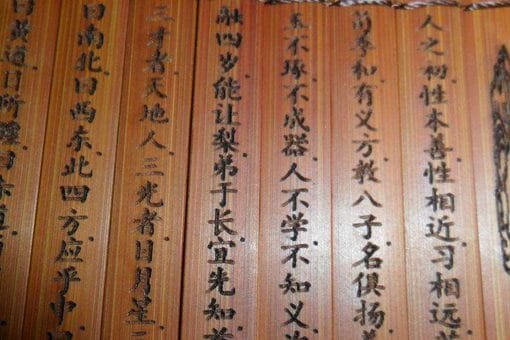 人之初性本善性相近习相远苟
荀季和有义方教八子名俱扬养
玉不琢不成器人不学不知义为
融四岁能让梨弟于长宜先知首
三才者天地人三光者日月星三
曰南北曰西东此四方应乎中曰
曰黄道日所躔曰赤道